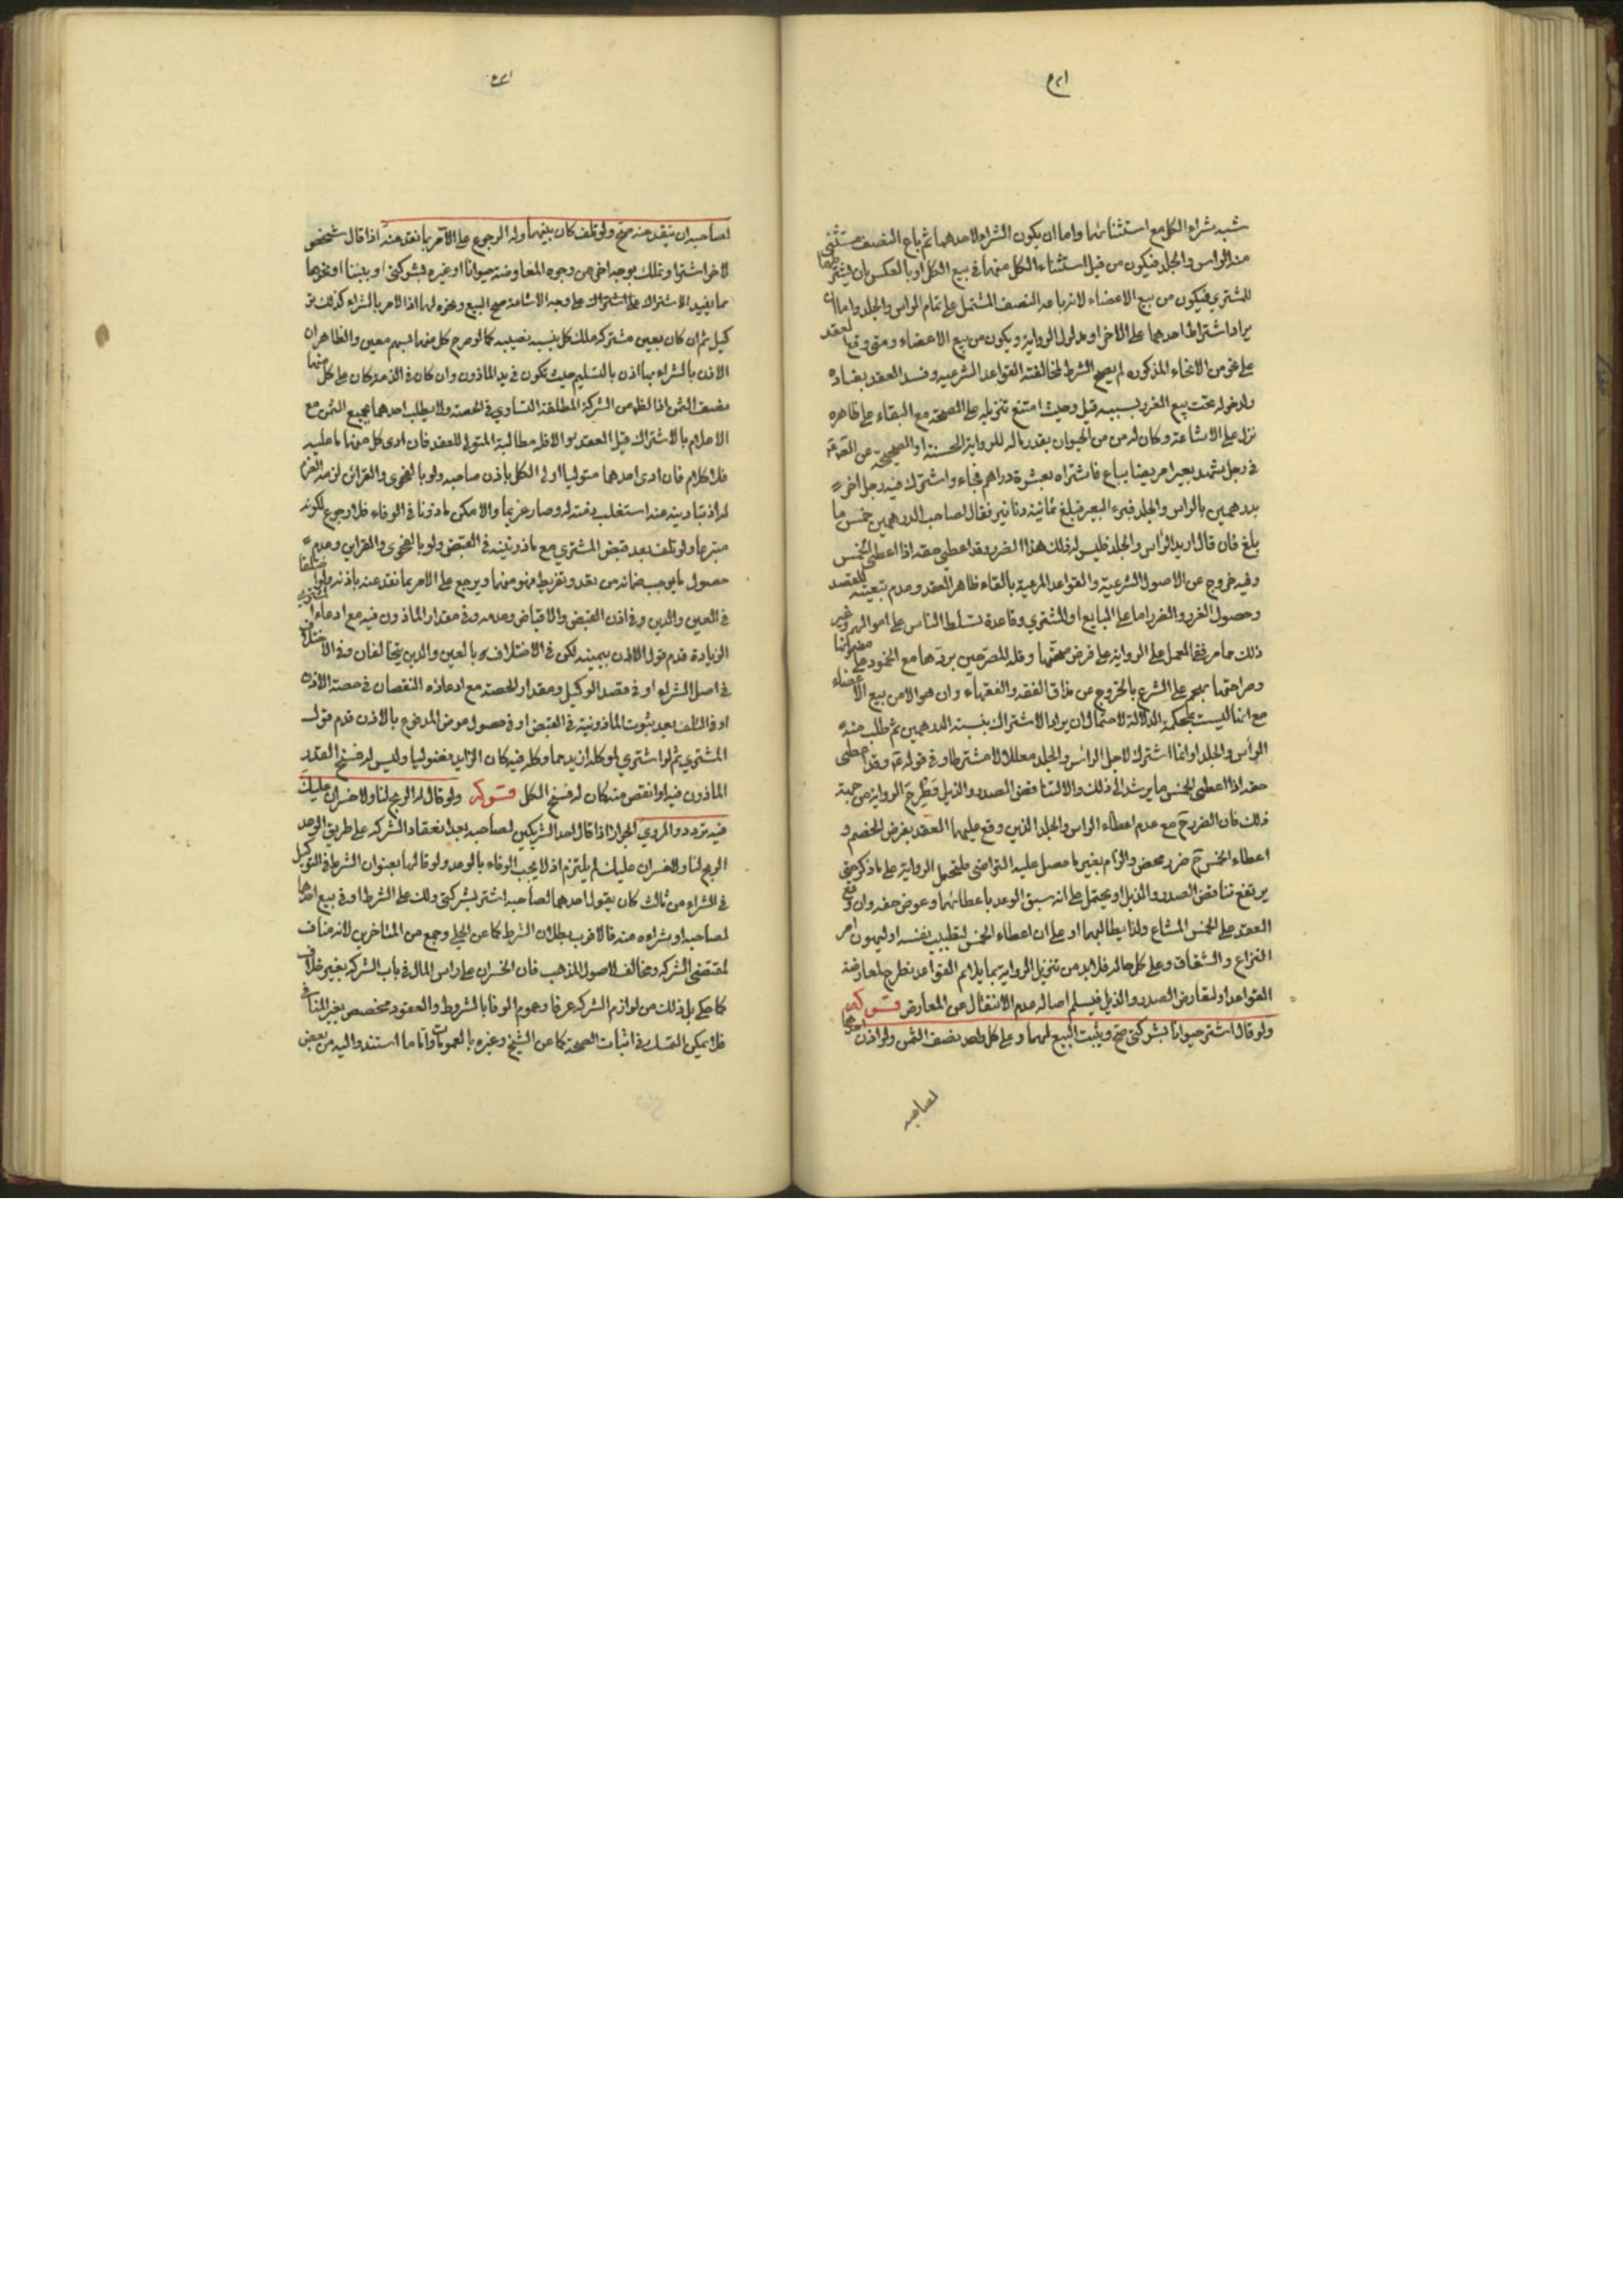 شبه بشراء الكل مع استثنائها واما ان يكون الشراء لاحدهما ثم باع النصف مستثنى
منه الراس والجلد فيكون من قبيل استثناء الكل منهما في بيع الكل او بالعكس بان يشترطهما
للمشتري فيكون من بيع الاعضاء لانه باعه النصف المشتمل على تمام الراس والجلد واما ان
يراد اشتراط احدهما على الاخر وهو مدلول الرواية ويكون من بيع الاعضاء ومتى وقع العقد
على نحو من الانحاء المذكوره لم يصح الشرط لمخالفته القواعد الشرعيه وفسد العقد بفساده
ولدخوله تحت بيع الغرر بسببه قيل وحيث امتنع تنزيله على الصحة مع البقاء على ظاهره
نزل على الاشاعة وكان له من من الحيوان بقدر ماله للرواية الحسنة او الصحيحة عن
في رجل يشهد بعيرا مريضا يباع فاشتراه بعشرة دراهم فجاء واشترك فيه رجل اخر
بدرهمين بالراس والجلد فبرء البعير فبلغ ثمانية دنانير فقال لصاحب الدرهمين خمس ما
بلغ فان قال اريد الرأس والجلد فليس له ذلك هذا الضرر وقد اعطى حقه اذا اعطى الخمس
وفيه خروج عن الاصول الشرعية والقواعد المرعية بالقاء ظاهر العقد وعدم تبعيته للقصد
وحصول الغرر والضرر اما على البايع او المشتري وقاعدة تسلط الناس على اموالهم وغير
ذلك مما مر ففي العمل على الرواية على فرض صحتها وقلة المصرحين بردها مع
وصراحتها تهجم على الشرع بالخروج عن مذاق الفقه والفقهاء وان هو الا من بيع الاعضاء
مع انها ليست بمحكمة الدلالة لاحتمال ان يراد الاشتراك بنسبة الدرهمين ثم طلب منه
الرأس والجلد او انما اشترك لاجل الرأس والجلد معللا لا مشترطا وفي قوله وقد اعطى
حقه اذا اعطى الخمس ما يرشد الى ذلك والا لتناقض الصدر والذيل فتطرح الرواية من جهة
ذلك فان الضرر ح مع عدم اعطاء الراس والجلد الذين وقع عليهما العقد بفرض الخصم و
اعطاء الخمس ح ضرر محض والزام بغير ما حصل عليه التراضي فلتحمل الرواية على ما ذكر حتى
يرتفع تناقض الصدر والذيل او يحتمل على انه سبق الوعد باعطائهما وعوض حقه وان وقع
العقد على الخمس المشاع ولذا يطالبهما او على ان اعطاء الخمس لتطييب نفسه او ليهون امر
النزاع والشقاق وعلى كل حاله فلا بد من تنزيل الرواية بما يلائم القواعد بطرح لمعارضة
القواعد او لتعارض الصدر والذيل فيسلم اصاله عدم الانتقال عن المعارض قوله
ولو قال اشتر حيوانا بشركتي صح ويثبت البيع لهما وعلى كل واحد نصف الثمن ولو اذن احدهما
لصاحبه
لصاحبه ان ينقد عنه صح ولو تلف كان بينهما وله الرجوع على الآمر بما نقد عنه اذا قال شخص
لاخر اشتر او تملك بوجه اخر من وجوه المعاوضة حيوانا او غيره بشركتي او بيننا او نحوهما
مما يفيد الاشتراك على وجه الاشاعة صح البيع ونحوه لهما اذ الامر بالشراء كذلك تو
كيل ثم ان كان بعين مشتركه ملك كل بنسبه نصيبه كما لو صرح كل منهما بسهم معين والظاهر ان
الاذن بالشراء بها اذن بالتسليم حيث تكون في يد الماذون وان كان في الذمه كان على كل منهما
نصف الثمن اذا لظ من الشركة المطلقة التساوي في الحصة ولا يطلب احدهما بجميع الثمن مع
الاعلام بالاشتراك قبل العقد والا فله مطالبة المتولي للعقد فان ادى كل منهما ما عليه
فلا كلام فان ادى احدهما متوليا اولى الكل باذن صاحبه ولو بالفحوى والقرائن لزمه الغرم
له اذ بتاديته عنه استغلت ذمته له وصار غريما والا مكن ماذونا في الوفاء فلا رجوع لكونه
متبرعا ولو تلف بعد قبض المشتري مع ماذونيته في القبض ولو بالفحوى والقراين وعدم
حصول ما يوجب ضمانه من تعد وتفريط فهو منهما ويرجع على الامر بما نقد عنه باذنه ولو اختلفا
في العين والدين وفي اذن القبض والاقباض وعدمه وفي مقدار الماذون فيه مع ادعاء المشتري
الزيادة قدم قول الاذن بيمينه لكن في الاختلاف بالعين والدين يتحالفان وفي الاختلاف
في اصل الشراء او في قصد الوكيل ومقدار الحصة مع ادعائه النقصان في حصة الاذن
او في التلف بعد ثبوت الماذونية في القبض او في حصول عوض المدفوع بالاذن قدم قول
المشتري ثم لو اشترى لموكله ازيد مما وكله فيه كان الزايد فضوليا وليس له فسخ العقد
الماذون فيه او انقص منه كان له فسخ الكل قوله ولو قال له الربح لنا ولا خسران عليك
فيه تردد والمروي الجواز اذا قال احد الشريكين لصاحبه بعد انعقاد الشركه على طريق الوعد
الربح لنا ولا خسران عليك لم يلتزم اذ لا يجب الوفاء بالوعد ولو قالها بعنوان الشرط في التوكيل
في الشراء من ثالث كان يقول احدهما لصاحبه اشتر بشركتي ولك على الشرط او في بيع احدهما
لصاحبه او شراءه منه فالاقرب بطلان الشرط كما عن الحلي وجمع من المتاخرين لانه مناف
لمقتضى الشركه ومخالف لاصول المذهب فان الخسران على راس المال في باب الشركه بغير خلاف
كما حكي بل ذلك من لوازم الشركه عرفا وعموم الوفا بالشروط والعقود مخصص بغير المنافي
فلا يمكن التمسك في اثبات الصحة كما عن الشيخ وغيره بالعمومات واما ما استند واليه من بعض